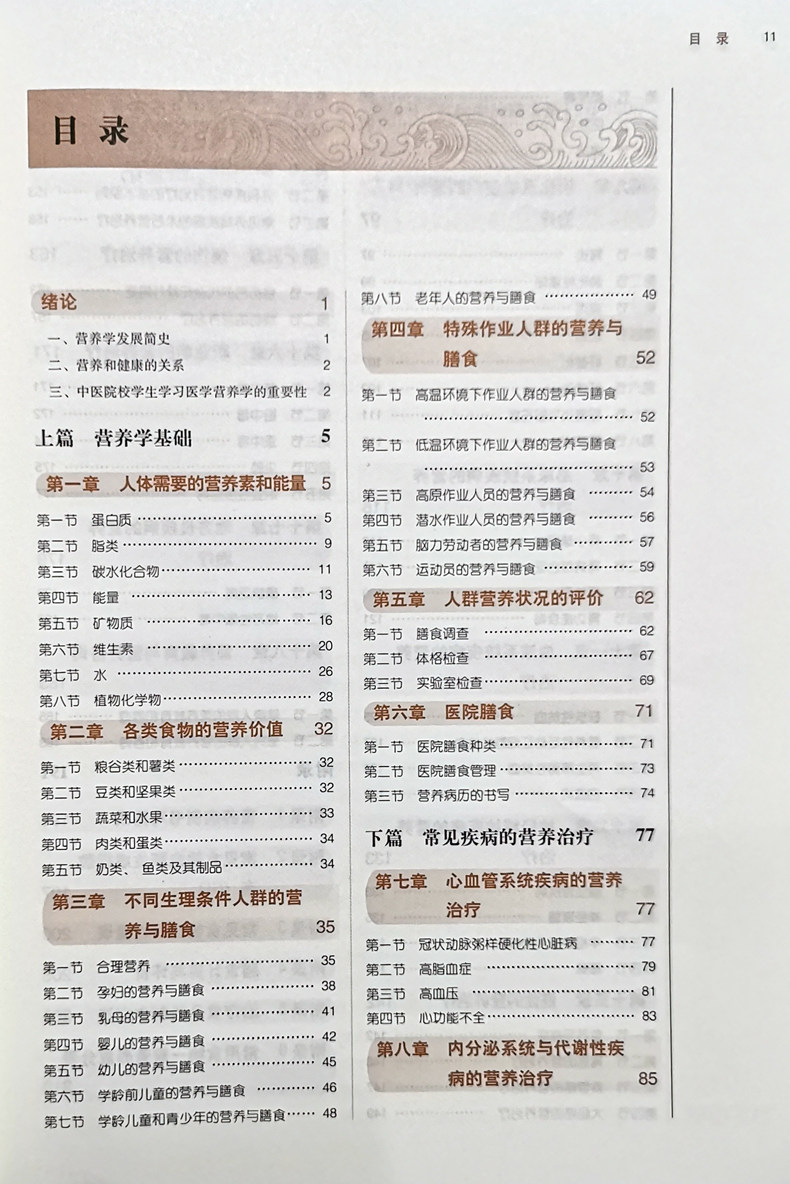 目 录 11
目 录
绪论 1
一、营养学发展简史 1
二、营养和健康的关系 2
三、中医院校学生学习医学营养学的重要性 2
上篇 营养学基础 5
第一章 人体需要的营养素和能量 5
第一节 蛋白质 5
第二节 脂类 9
第三节 碳水化合物 11
第四节 能量 13
第五节 矿物质 16
第六节 维生素 20
第七节 水 26
第八节 植物化学物 28
第二章 各类食物的营养价值 32
第一节 粮谷类和薯类 32
第二节 豆类和坚果类 32
第三节 蔬菜和水果 33
第四节 肉类和蛋类 34
第五节 奶类、鱼类及其制品 34
第三章 不同生理条件人群的营
养与膳食 35
第一节 合理营养 35
第二节 孕妇的营养与膳食 38
第三节 乳母的营养与膳食 41
第四节 婴儿的营养与膳食 42
第五节 幼儿的营养与膳食 45
第六节 学龄前儿童的营养与膳食 46
第七节 学龄儿童和青少年的营养与膳食 48
第八节 老年人的营养与膳食 49
第四章 特殊作业人群的营养与
膳食 52
第一节 高温环境下作业人群的营养与膳食
52
第二节 低温环境下作业人群的营养与膳食
53
第三节 高原作业人员的营养与膳食 54
第四节 潜水作业人员的营养与膳食 56
第五节 脑力劳动者的营养与膳食 57
第六节 运动员的营养与膳食 59
第五章 人群营养状况的评价 62
第一节 膳食调查 62
第二节 体格检查 67
第三节 实验室检查 69
第六章 医院膳食 71
第一节 医院膳食种类 71
第二节 医院膳食管理 73
第三节 营养病历的书写 74
下篇 常见疾病的营养治疗 77
第七章 心血管系统疾病的营养
治疗 77
第一节 冠状动脉粥样硬化性心脏病 77
第二节 高脂血症 79
第三节 高血压 81
第四节 心功能不全 83
第八章 内分泌系统与代谢性疾
病的营养治疗 85